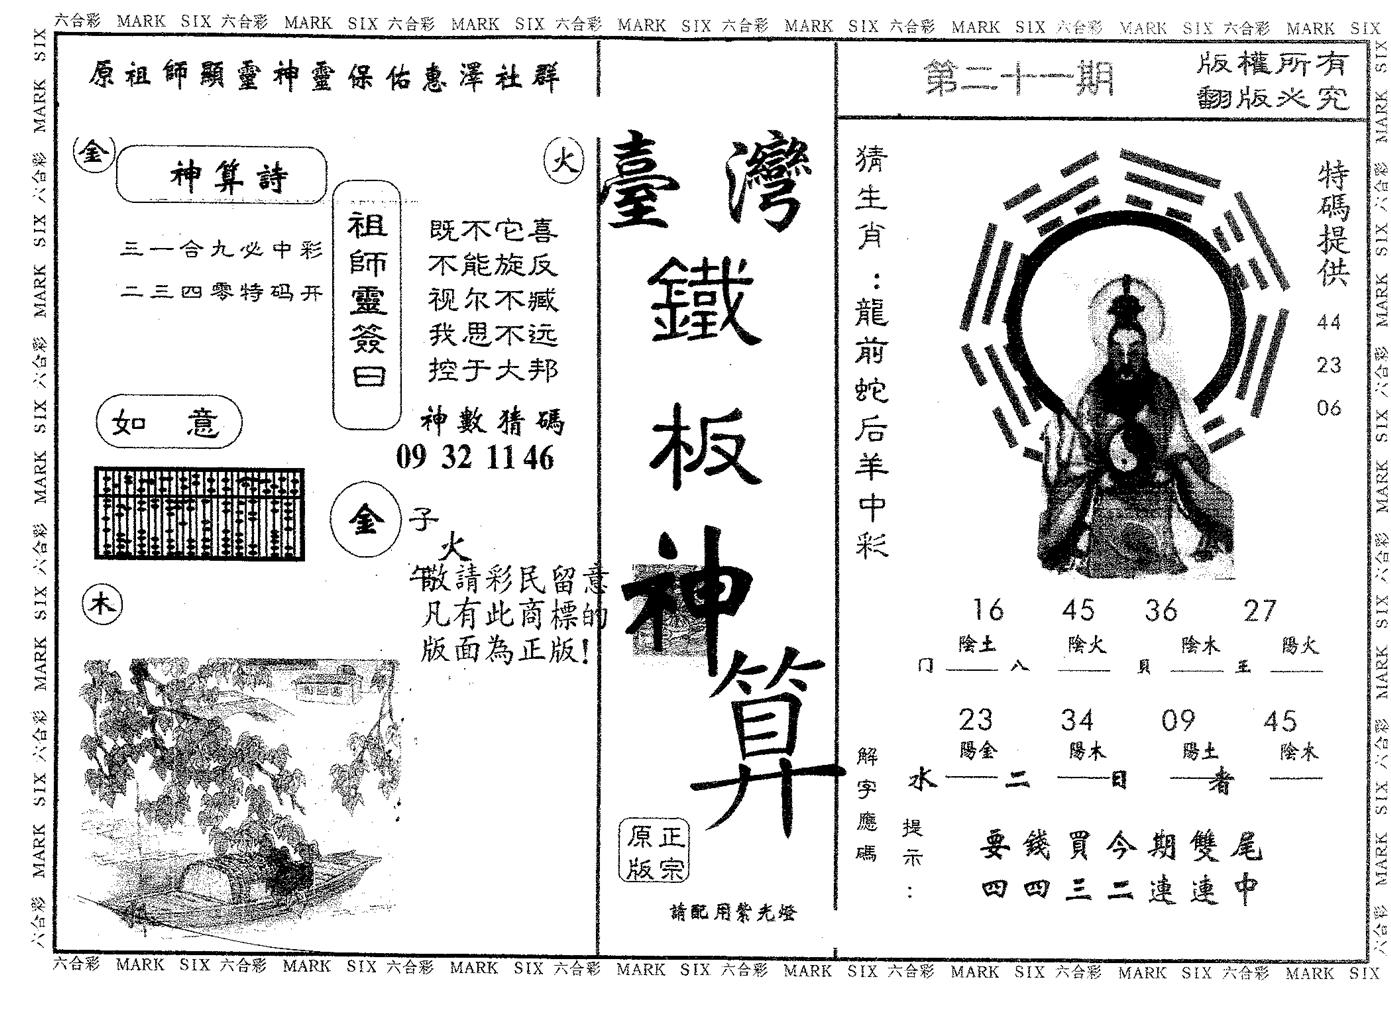 六合彩 MARK SIX 六合彩 MARK SIX 六合彩 MARK SIX 六合彩 MARK SIX 六合彩 MARK SIX 六合彩 MARK SIX 六合彩 MARK SIX 六合彩 MARK SIX
原祖師顯靈神靈保佑惠澤社群
金
神算詩
火
三一合九必中彩
二三四零特码开
祖師靈簽曰
既不它喜
不能旋反
视尔不臧
我思不远
控于大邦
神數猜碼
09 32 11 46
如意
金
子
火
午
敬請彩民留意
凡有此商標的
版面為正版!
木
臺灣
鐵
板
神
算
正宗
原版
請配用紫光燈
第二十一期
版權所有
翻版必究
猜生肖:龍前蛇后羊中彩
特碼提供
44
23
06
16 45 36 27
陰土 陰火 陰木 陽火
门 八 貝 王
23 34 09 45
陽金 陽木 陽土 陰木
水 二 日 者
解字應碼
提示:
要錢買今期雙尾
四四三二連連中
六合彩 MARK SIX 六合彩 MARK SIX 六合彩 MARK SIX 六合彩 MARK SIX 六合彩 MARK SIX 六合彩 MARK SIX 六合彩 MARK SIX 六合彩 MARK SIX
六合彩 MARK SIX 六合彩 MARK SIX 六合彩 MARK SIX 六合彩 MARK SIX 六合彩 MARK SIX
六合彩 MARK SIX 六合彩 MARK SIX 六合彩 MARK SIX 六合彩 MARK SIX 六合彩 MARK SIX